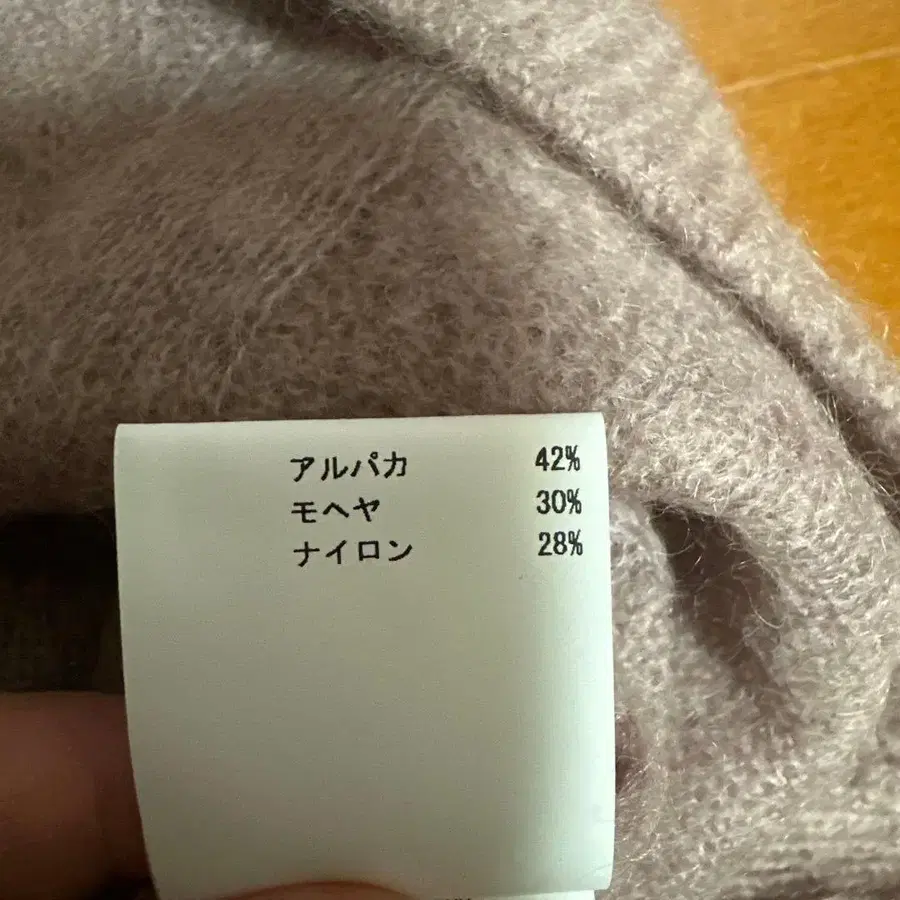 アルパカ 42%
モヘヤ 30%
ナイロン 28%